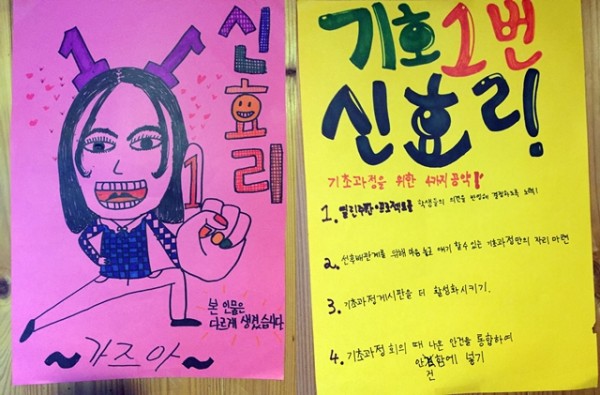 신효리
1
본 인물은
다르게 생겼습니다
~가즈아~
기호1번
신효리!
기초과정을 위한 4가지 공약!
1. 학생들의 의견을 반영하여 결정하도록 노력!
2. 선후배관계를 위해 마음 놓고 얘기 할 수 있는 기초과정만의 자리 마련
3. 기초과정게시판을 더 활성화시키기.
4. 기초과정 회의 때 나온 안건을 통합하여
안건함에 넣기